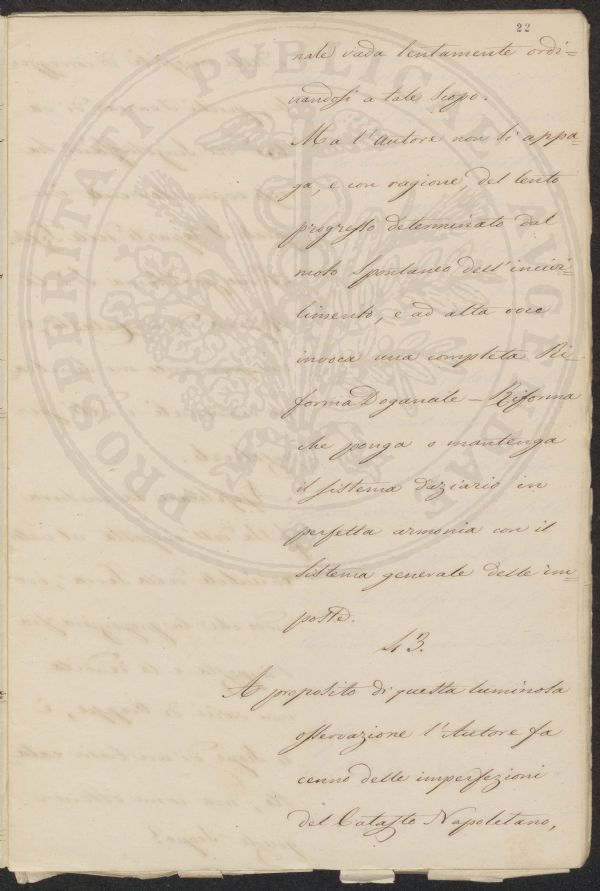 22
nale vada lentamente ordi=
nandosi a tale scopo.
Ma l'autore non si appa=
ga, e con ragione, del lento
progresso determinato dal
moto spontaneo dell'incivi=
limento, e ad alta voce
invoca una completa Ri=
forma Doganale – Riforma
che ponga o mantenga
il sistema daziario in
perfetta armonia con il
sistema generale delle im=
poste.
43.
A proposito di questa luminosa
osservazione l'Autore fa
cenno delle imperfezioni
del Catasto Napoletano,
PROSPERITATI PVBLICAE AVGENDAE